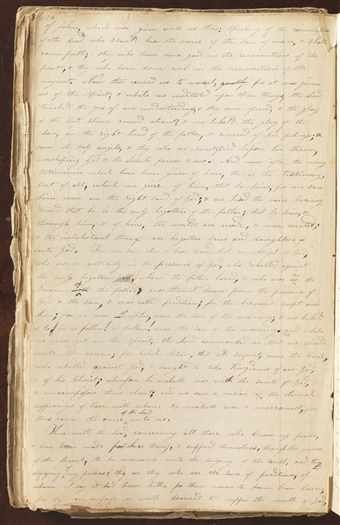 of John, which was given unto us thus: speaking of the resurrection
of the dead who should hear the voice of the Son of man, & shall
come forth, they who have done good in the resurrection of the
just, & they who have done evil in the resurrection of the
unjust. Now this caused us to marvel, for it was given us
of the spirit; & while we meditated upon these things, the Lord
touched the eyes of our understandings, & they were opened, & the glory
of the Lord shone round about; & we beheld the glory of the
Son, on the right hand of the father, & received of his fulness, &
saw the holy angels, & they who are sanctified before his throne,
worshiping God & the Lamb forever & ever. And now after the many
testimonies which have been given of him, this is the testimony,
last of all, which we give of him, that he lives, for we saw
him, even on the right hand of God; & we heard the voice bearing
record that he is the only begotten of the father; that by him, &
through him, & of him, the worlds are made, & were created; &
the inhabitants thereof are begotten sons and daughters
unto God. And this we saw also & bear record that an Angel of God,
who was in authority in the presence of God, who rebelled against
the only begotten son, whom the father loved, & who was in the
bosom of the father, & was thrust down from the presence of
God & the son, & was called perdition; for the heavens wept over
him; for he was Lucifer, even the son of the morning; & we beheld
& lo he is fallen! is fallen! even the son of the morning. And while
we were yet in the spirit, the Lord commanded us that we should
write the vision; for behold satan, that old serpent, even the devil,
who rebelled against God, & sought to take the Kingdoms of our God,
& of his Christ; wherefore he maketh war with the saints of God,
& encompasses them about; and we saw a vision of the eternal
sufferings of those with whom he maketh war & overcometh,
for thus came the voice of the Lord unto us.
Thus saith the Lord, concerning all those who know my power,
& have been made partakers thereof, & suffered themselves, through the power
of the devil, to be overcome unto the denying of the truth, and the
defying of my power: they are they who are the sons of perdition, of
whom I say it had been better for them never to have been born;
for they are vessels of wrath doomed to suffer the wrath of God,